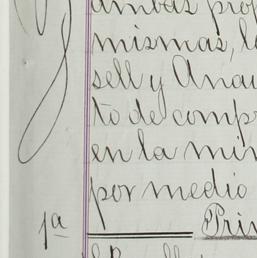 ambas pro
mismas, l
sell y Anau
to de comp
en la min
por medio
1ª Pri